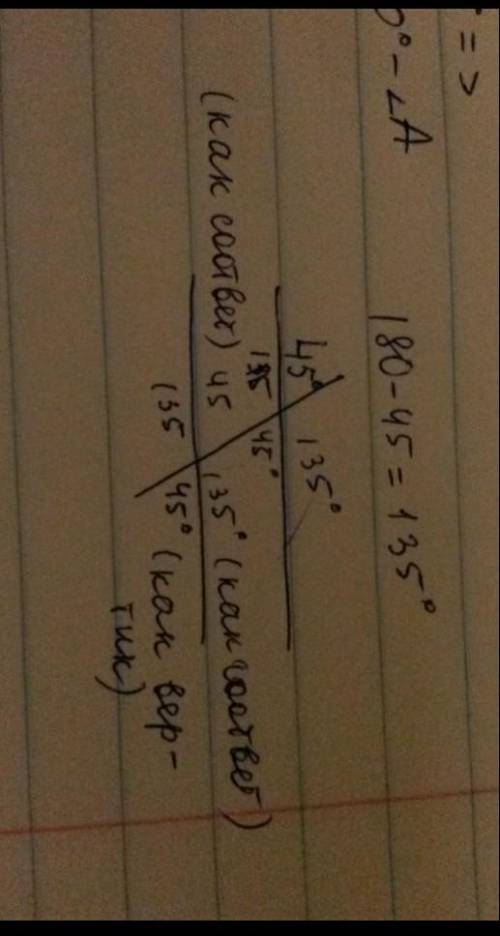 =>
0° - ∠A
180 - 45 = 135°
45° 135°
135 45°
(как соответ) 45 135° (как соответ)
135 45° (как вер-
тик)